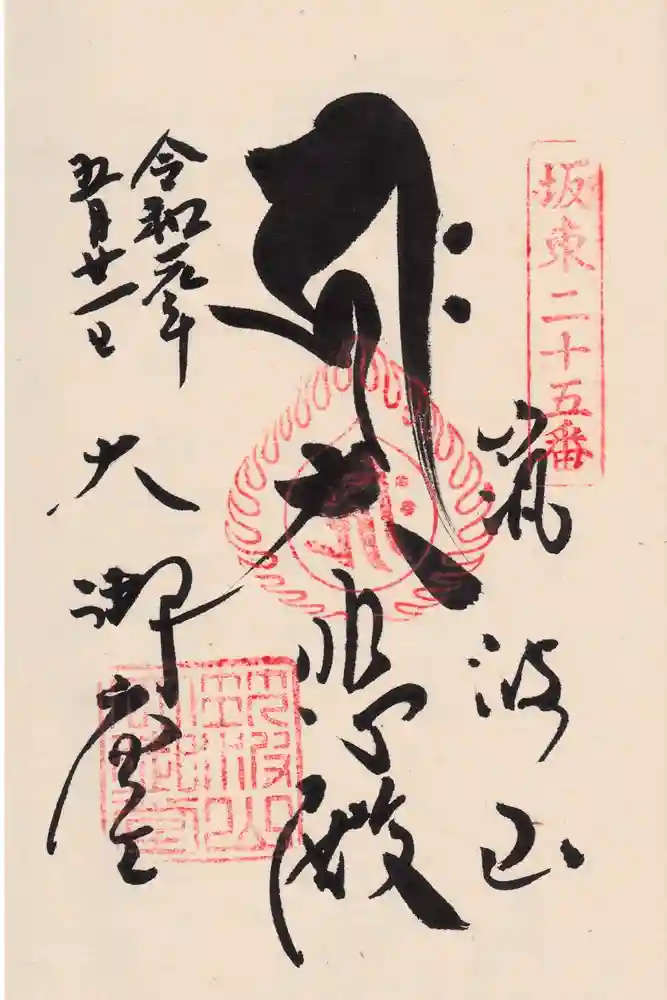 坂東二十五番
筑波山
大悲殿
令和元年
五月廿一日
大御堂